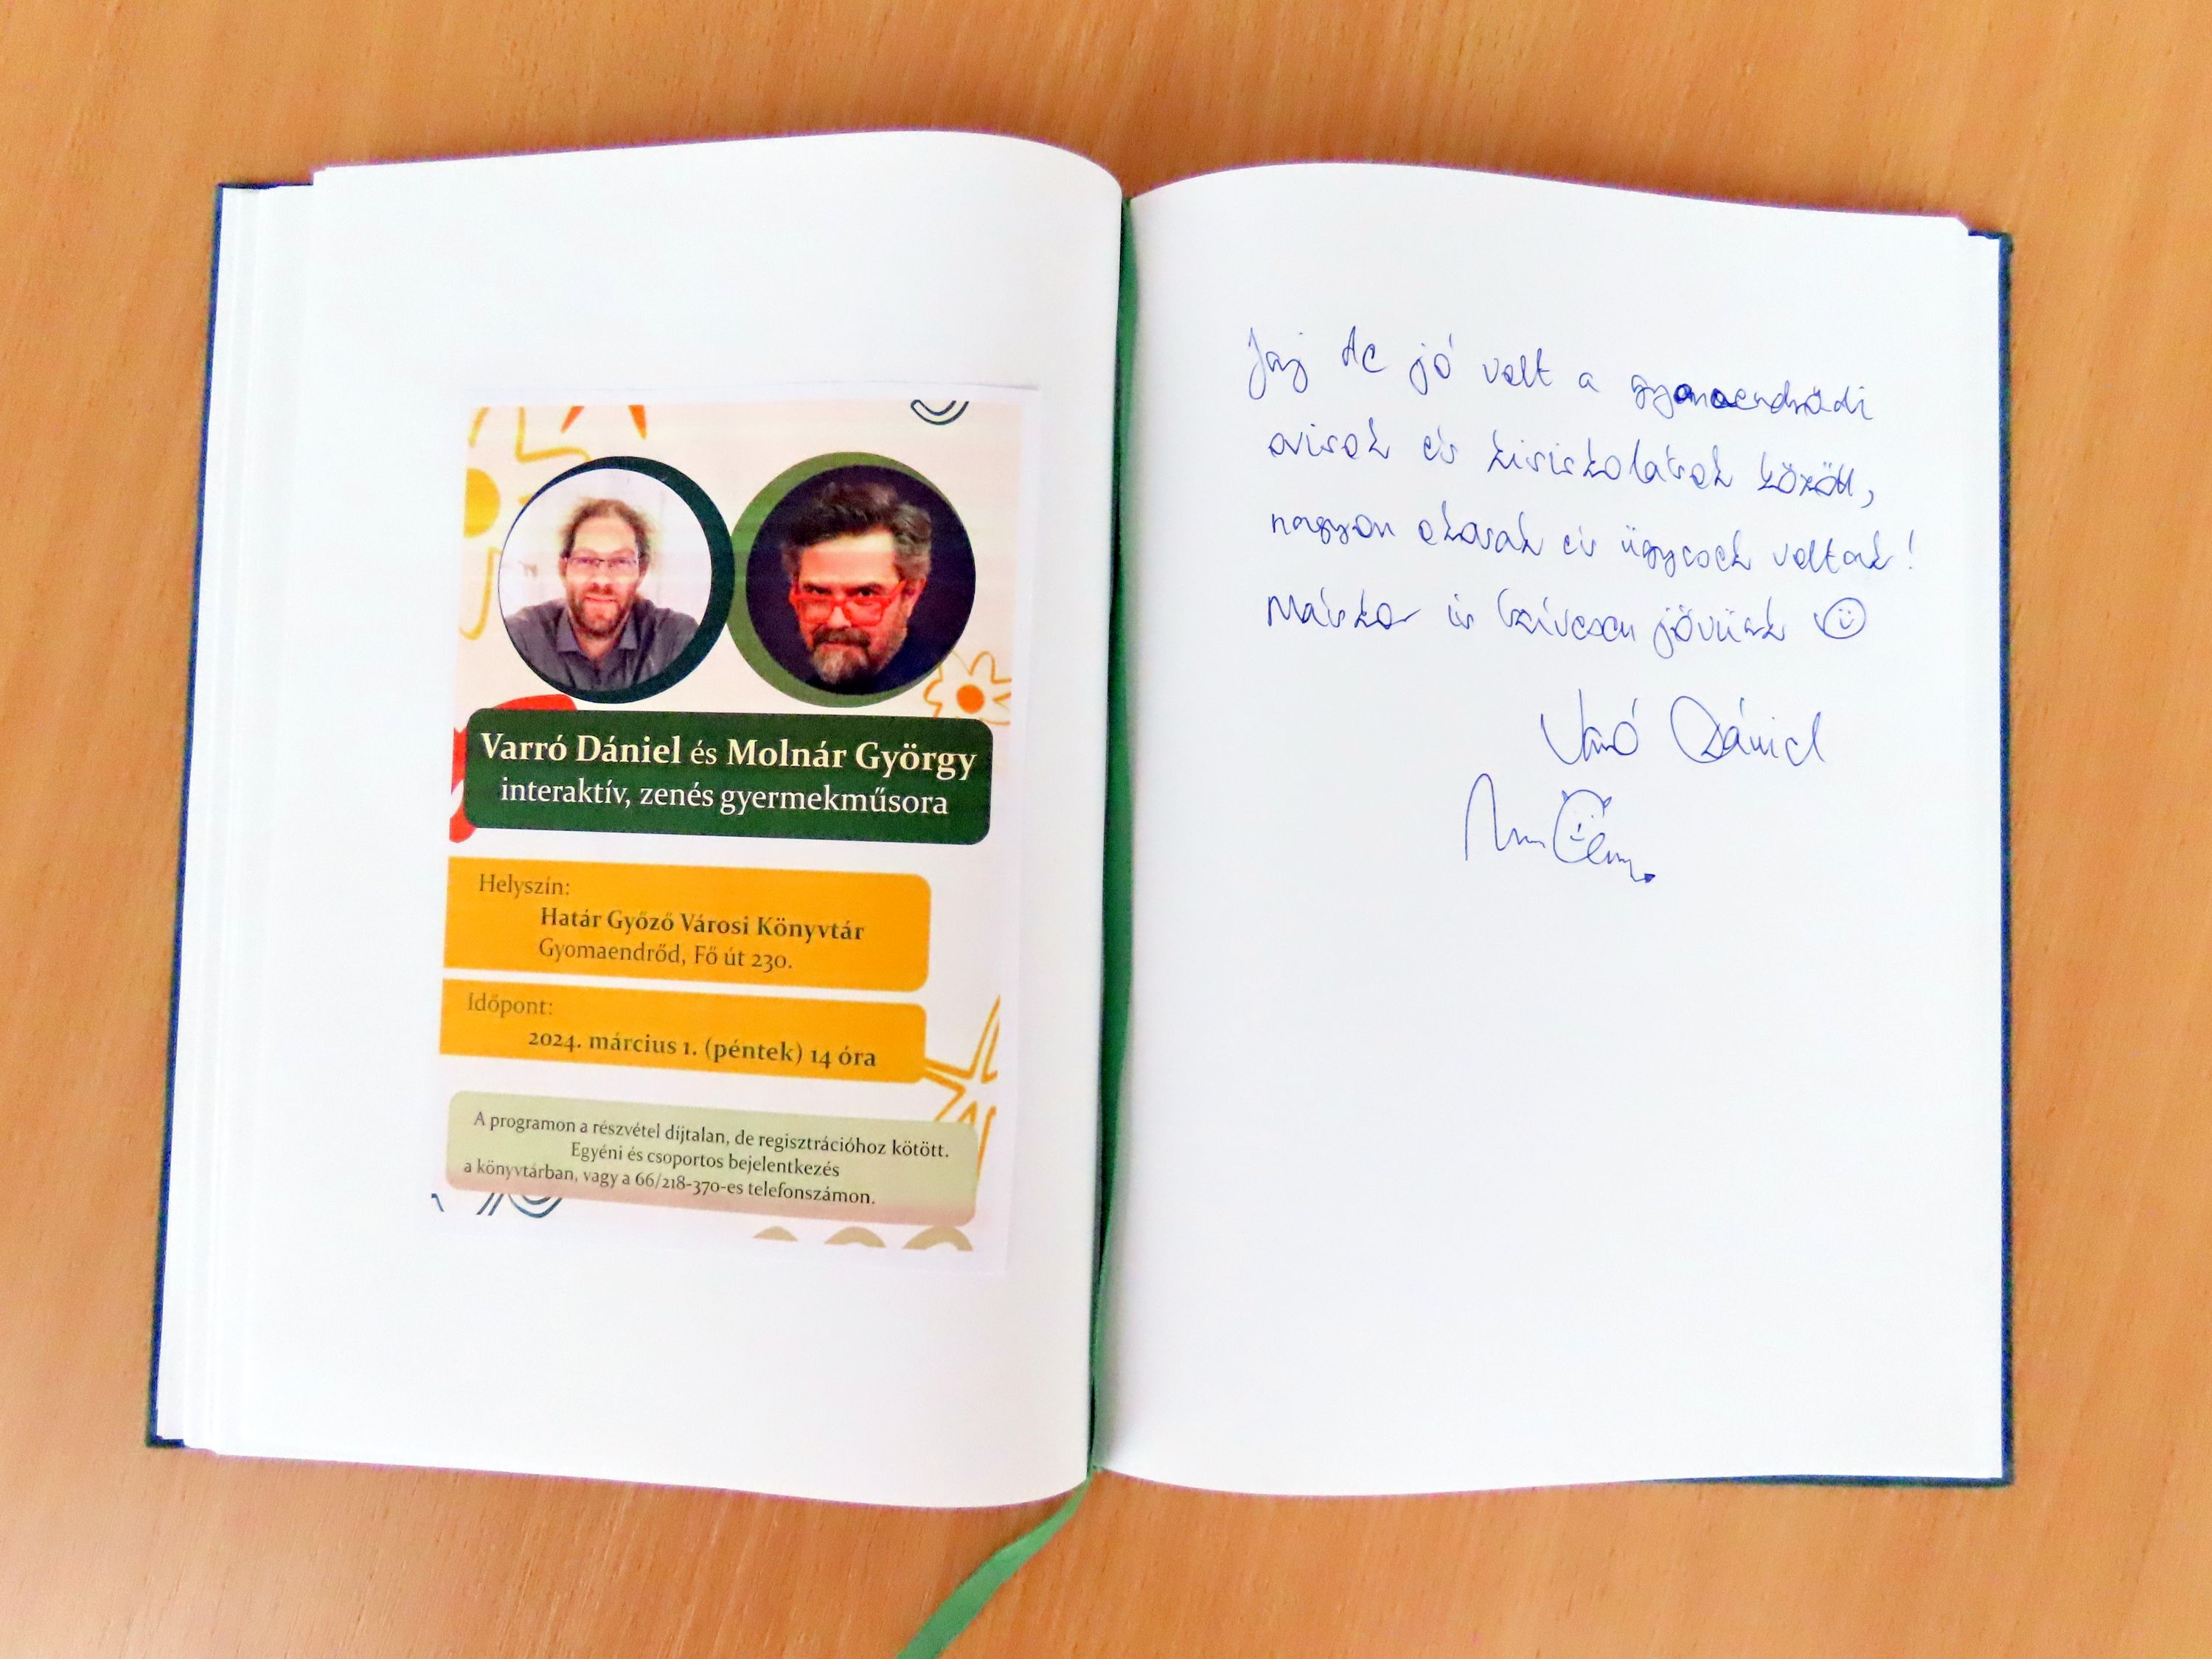 Varró Dániel és Molnár György
interaktív, zenés gyermekműsora
Helyszín:
Határ Győző Városi Könyvtár
Gyomaendrőd, Fő út 230.
Időpont:
2024. március 1. (péntek) 14 óra
A programon a részvétel díjtalan, de regisztrációhoz kötött.
Egyéni és csoportos bejelentkezés
a könyvtárban, vagy a 66/218-370-es telefonszámon.
Jaj de jó volt a gyomaendrődi
ovisok és kisiskolások között,
nagyon okosak és ügyesek voltak!
Máskor is szívesen jövünk
Varró Dániel